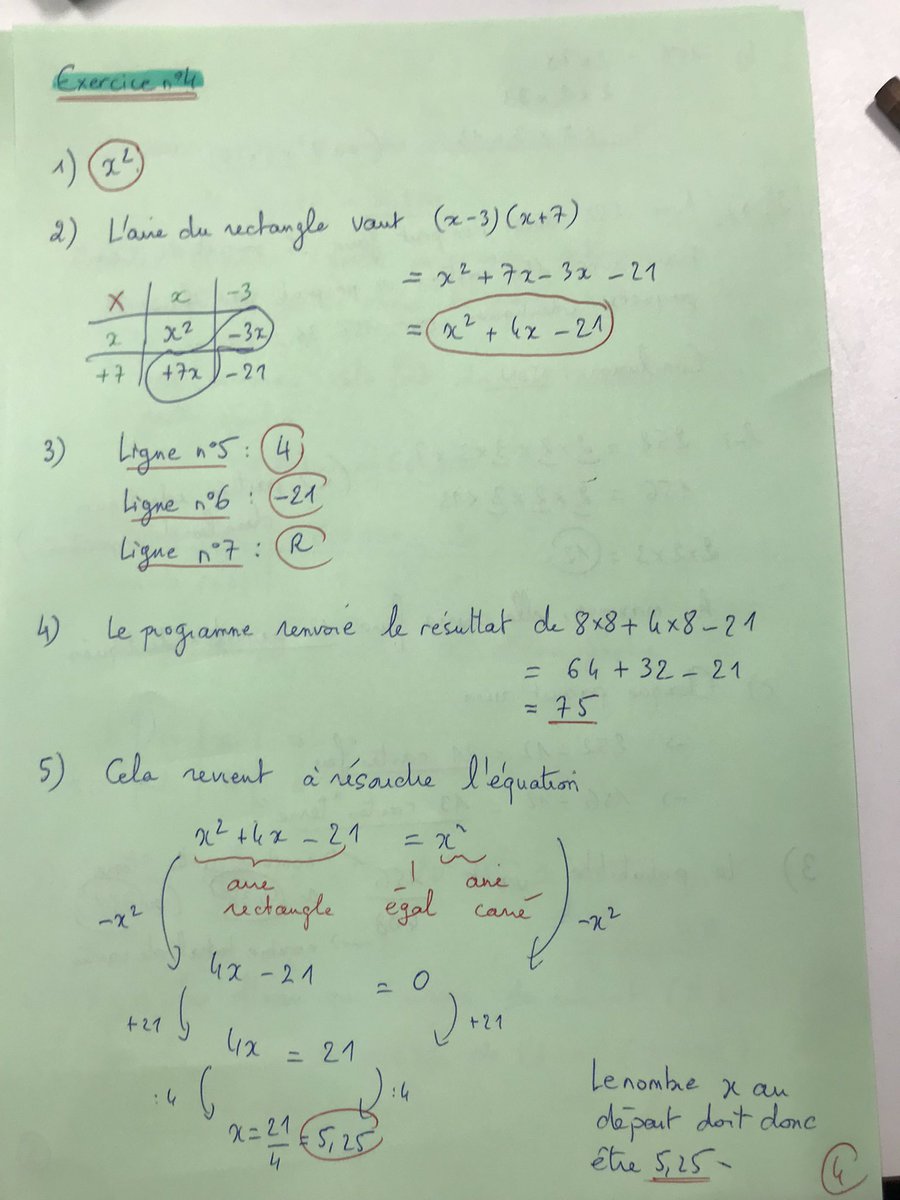 Exercice n°4
1) x²
2) L'aire du rectangle vaut (x-3)(x+7)
= x² + 7x - 3x - 21
= x² + 4x - 21
X x -3
x x² -3x
+7 +7x -21
3) Ligne n°5 : 4
Ligne n°6 : -21
Ligne n°7 : R
4) Le programme renvoie le résultat de 8×8+4×8-21
= 64 + 32 - 21
= 75
5) Cela revient à résoudre l'équation
x² + 4x - 21 = x²
aire rectangle égal aire carré
-x² -x²
4x - 21 = 0
+21 +21
4x = 21
:4 :4
x = 21/4 = 5,25
Le nombre x au
départ doit donc
être 5,25
4